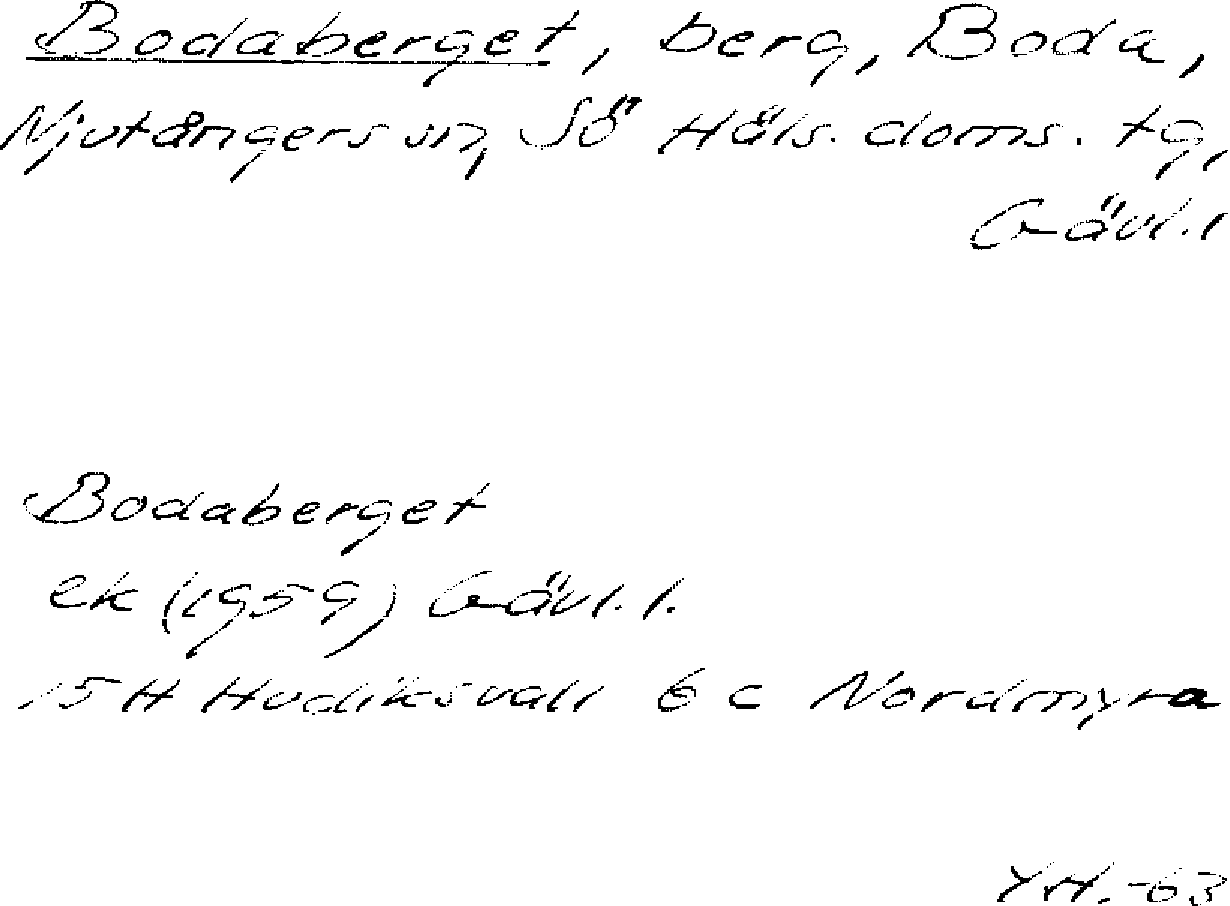 Bodaberget, berg, Boda,
Njutångers sn, Sö Häls. doms. tg,
Gävl. l
Bodaberget
ek (1959) Gävl. l.
15 H Hudiksvall 6 c Nordmyra
Y.H. -63